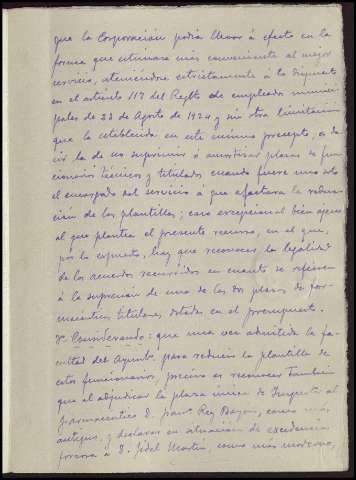 que la Corporación podía llevar á efecto en la
forma que estimara más conveniente al mejor
servicio, ateniéndose estrictamente á lo dispuesto
en el artículo 117 del Reglto de empleados munici-
pales de 23 de Agosto de 1924 y sin otra limitación
que la establecida en este mismo precepto, es de-
cir la de no suprimir ó amortizar plazas de fun-
cionarios técnicos y titulados cuando fuere uno solo
el encargado del servicio á que afectara la reduc-
ción de las plantillas; caso excepcional bien ajeno
al que plantea el presente recurso, en el que,
por lo expuesto, hay que reconocer la legalidad
de los acuerdos recurridos en cuanto se refieren
á la supresión de una de las dos plazas de far-
macéuticos titulares, dotadas en el presupuesto.
Considerando: que una vez admitida la fa-
cultad del Ayuntº para reducir la plantilla de
estos funcionarios, preciso es reconocer también
que al adjudicar la plaza única de Inspector al
farmacéutico D. Franco Rey Bazán, como más
antiguo, y declarar en situación de excedencia
forzosa á D. Fidel Martín, como más moderno,